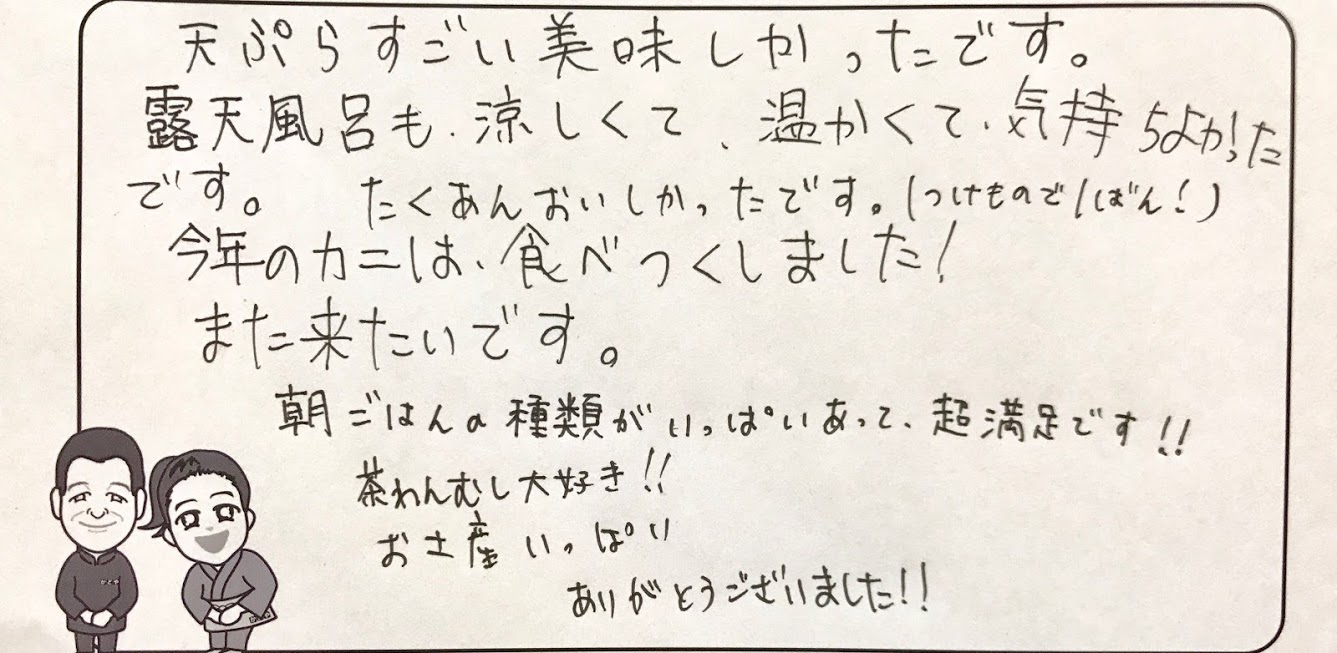 天ぷらすごい美味しかったです。
露天風呂も、涼しくて、温かくて、気持ちよかった
です。 たくあんおいしかったです。(つけもので1ばん!)
今年のカニは、食べつくしました!
また来たいです。
朝ごはんの種類がいっぱいあって、超満足です!!
茶わんむし大好き!!
お土産いっぱい
ありがとうございました!!